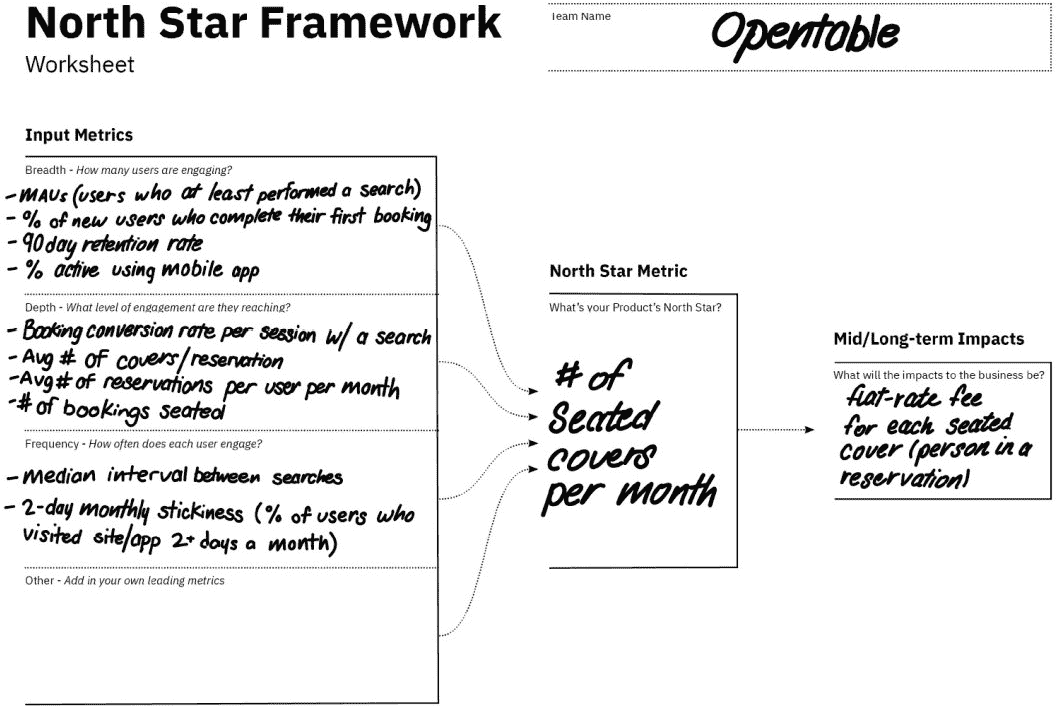 North Star Framework
Worksheet
Team Name
Opentable
Input Metrics
Breadth - How many users are engaging?
- MAUs (users who at least performed a search)
- % of new users who complete their first booking
- 90 day retention rate
- % active using mobile app
Depth - What level of engagement are they reaching?
- Booking conversion rate per session w/ a search
- Avg # of covers/reservation
- Avg # of reservations per user per month
- # of bookings seated
Frequency - How often does each user engage?
- Median interval between searches
- 2-day monthly stickiness (% of users who
visited site/app 2+ days a month)
Other - Add in your own leading metrics
North Star Metric
What's your Product's North Star?
# of
Seated
covers
per month
Mid/Long-term Impacts
What will the impacts to the business be?
flat-rate fee
for each seated
cover (person in a
reservation)